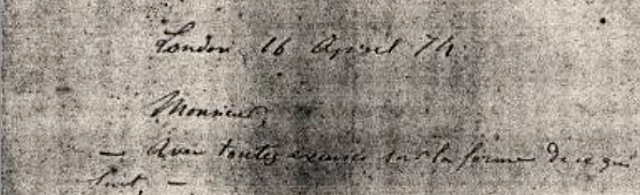 London 16 April 74.
Monsieur,
— Avec toutes excuses sur la forme de ce qui
suit, —